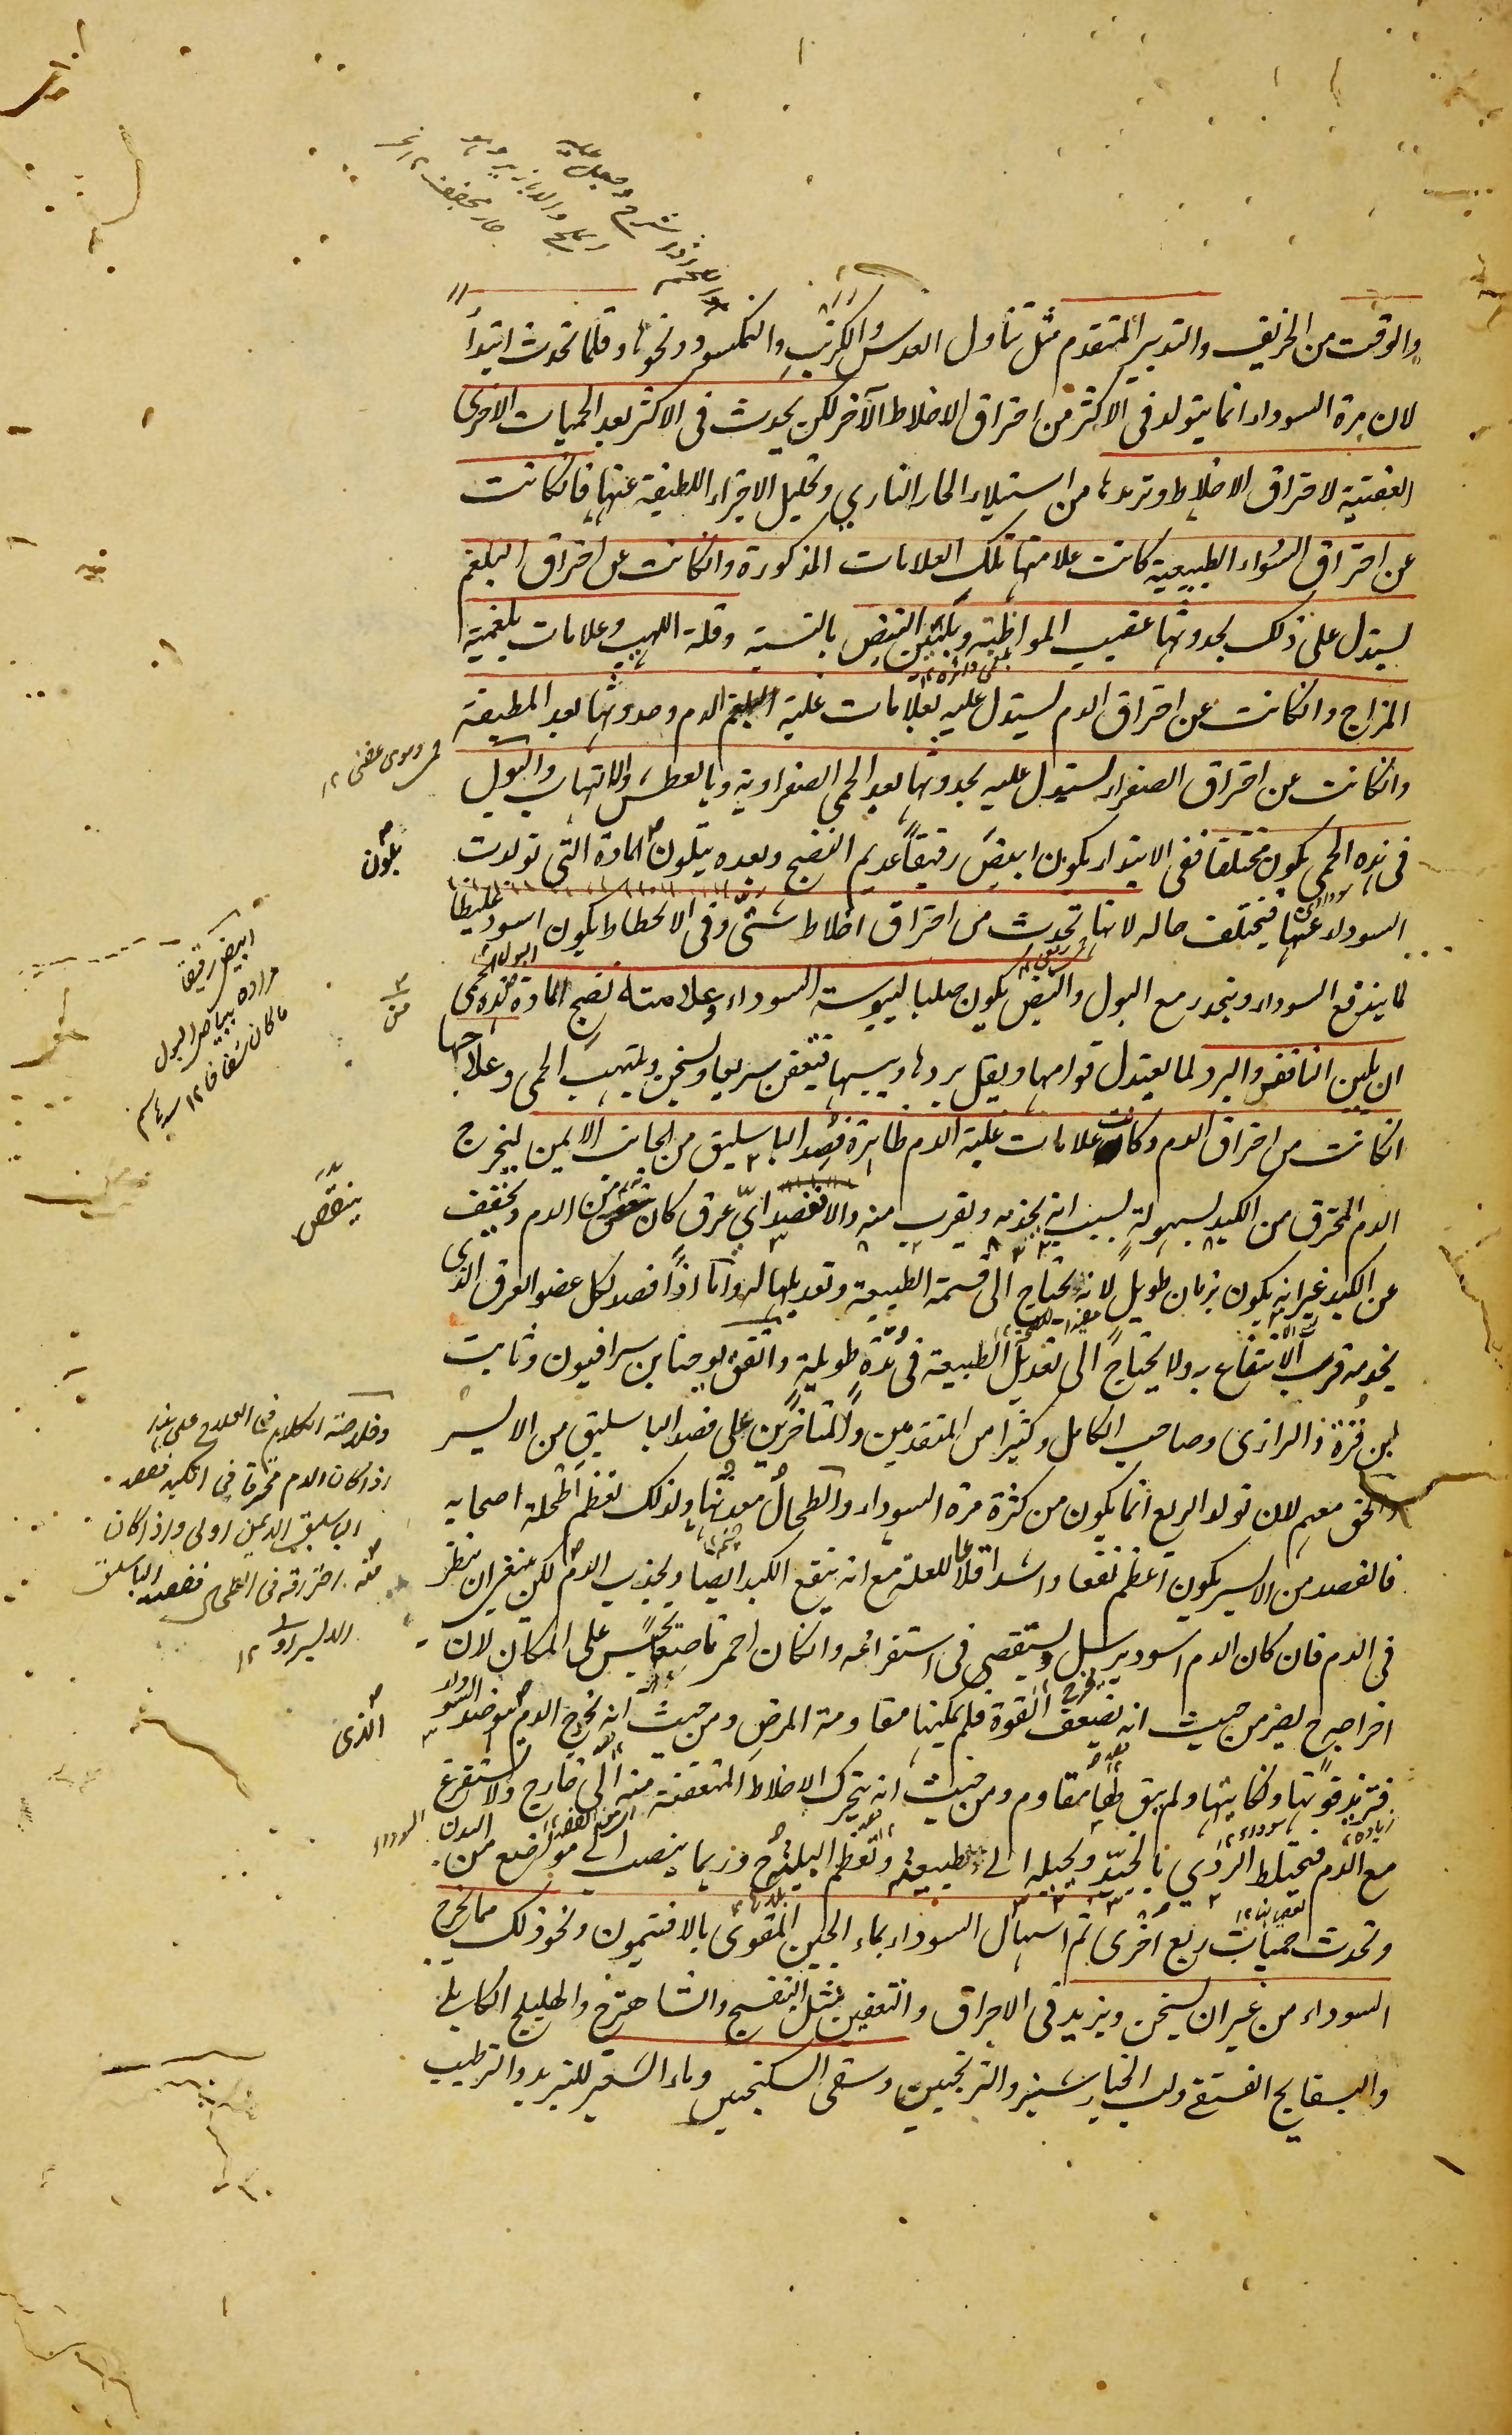 والوقت من الخريف والتدبير المتقدم مثل تناول العدس والكرنب والنمكسود ونحوها وقلما تحدث ابتدأ
لان مرة السوداء انما يتولد فى الاكثر من احتراق الاخلاط الآخر لكن يحدث فى الاكثر بعد الحميات الاخرى
العفنية لاحتراق الاخلاط وترمدها من استيلاء الحار النارى وتحليل الاجزاء اللطيفة عنها فانكانت
عن احتراق السوداء الطبيعية كانت علامتها تلك العلامات المذكورة وانكانت عن احتراق البلغم
يستدل على ذلك بحدوثها عقيب المواظبة وبلين النبض بالنسبة وقلة اللهيب وعلامات بلغمية
المزاج وانكانت عن احتراق الدم يستدل عليه بعلامات غلبة الدم وحدوثها بعد المطبقة
وانكانت عن احتراق الصفراء يستدل عليه بحدوثها بعد الحمى الصفراوية وبالعطش والالتهاب والبول
فى هذه الحمى يكون مختلفا ففى الابتداء يكون ابيض رقيقاً عديم النضج وبعده يتلون المادة التى تولدت
السوداء عنها فيختلف حاله لانها تحدث من احتراق اخلاط شتى وفى الانحطاط يكون اسود غليظا
لما يندفع السوداء وينحدر مع البول والنبض يكون صلبا ليبوسة السوداء وعلامته نضج المادة هذه الحمى
ان يلين النافض والبرد لما يعتدل قوامها ويقل بردها ويبسها فتتعفن سريعا ويسخن ويلتهب الحمى وعلاجها
انكانت من احتراق الدم وكانت علامات غلبة الدم ظاهرة فصد الباسليق من الجانب الايمن ليخرج
الدم المحترق من الكبد بسهولة بسبب انه يخدمه ويقرب منه والا فصد اىّ عرق كان من الدم ويخفف
عن الكبد غير انه يكون بزمان طويل لانه يحتاج الى قسمة الطبيعة وتعديلها له واما اذا فصد لكل عضو العرق الذى
يخدمه قرب الانتفاع به ولا يحتاج الى تعديل الطبيعة فى مدة طويلة واتفق يوحنا بن سرافيون وثابت
بن قرة والرازى وصاحب الكامل وكثيرا من المتقدمين والمتأخرين على فصد الباسليق من الايسر
والحق معهم لان تولد الربع انما يكون من كثرة مرة السوداء والطحال معدنها ولذلك تعظم اطحلة اصحابه
فالفصد من الايسر يكون اعظم نفعا واشد اقلاعا للعلة مع انه ينفع الكبد ايضا ويجذب الدم لكن ينبغى ان ينظر
فى الدم فان كان الدم اسود يرسل ويستقصى فى استفراغه وانكان احمر ناصعا يحبس على المكان لان
اخراجه يضر من حيث انه يضعف القوة فلم يمكنها مقاومة المرض ومن حيث انه يخرج الدم ضد السوداء
فتزيد قوتها ونكايتها ولم يبق لها مقاوم ومن حيث انه يتحرك الاخلاط المتعفنة منه الى خارج ولا يستفرغ
مع الدم فيختلط الردى بالجيد ويحيله الى طبيعته وتعظم البلية وربما ينصب الى موضع من البدن
وتحدث حميات ربع اخرى ثم اسهال السوداء بماء الجبن المقوى بالافتيمون ونحو ذلك مما يخرج
السوداء من غير ان يسخن ويزيد فى الاحراق والتعفين مثل البنفسج والشاهترج والهليلج الكابلى
والبسفايج الفستقى ولب الخيارشنبر والترنجبين وسقى السكنجبين وماء الشعير للتبريد والترطيب
بلون
ابيض رقيقا
مراده ببياض البول
ما كان شفافا ١٢
من
وخلاصة الكلام فى العلاج على هذا
اذا كان الدم محترقا فى الكبد ففصد
الباسليق الايمن اولى واذا كان
احتراقه فى الطحال ففصد الباسليق
الايسر اولى ١٢
الذى